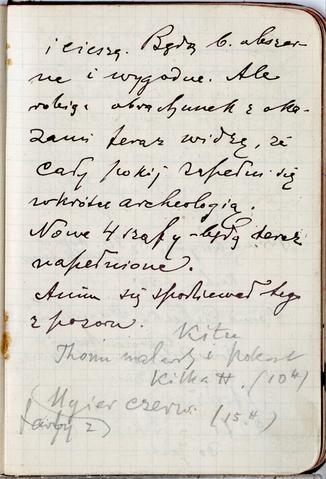 i cieszą. Będą b. obszer-
ne i wygodne. Ale
robiąc obrachunek z oka-
zami teraz widzę, że
cały pokój zapełni się
wkrótce archeologią.
Nowe 4 szafy będą teraz
napełnione.
się spodziewać tego
z pozoru.
Kitu
pokost
Kilka H. (10 H)
Ugier czerw. (15 H)
(farby 2)